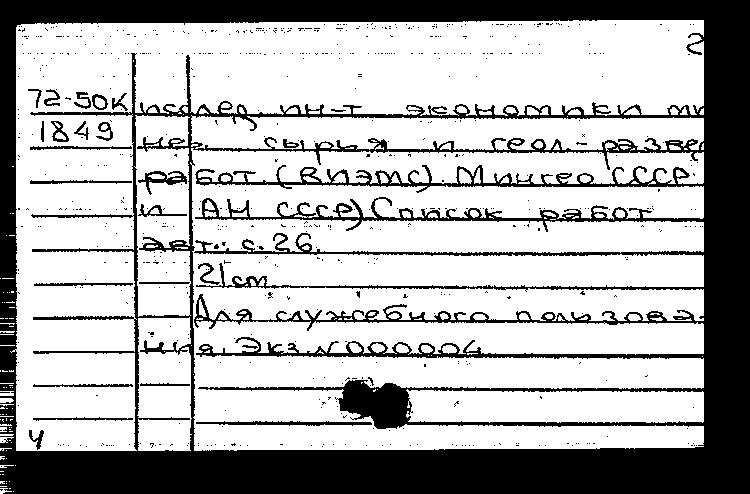 2
72-50К исслед. ин-т экономики ми
1849 нер. сырья и геол.-разве
работ (ВИЭМС). Мингео СССР
и АН СССР) Список работ
авт.: с. 26.
21 см
Для служебного пользова-
ния. Экз. N 000004
4